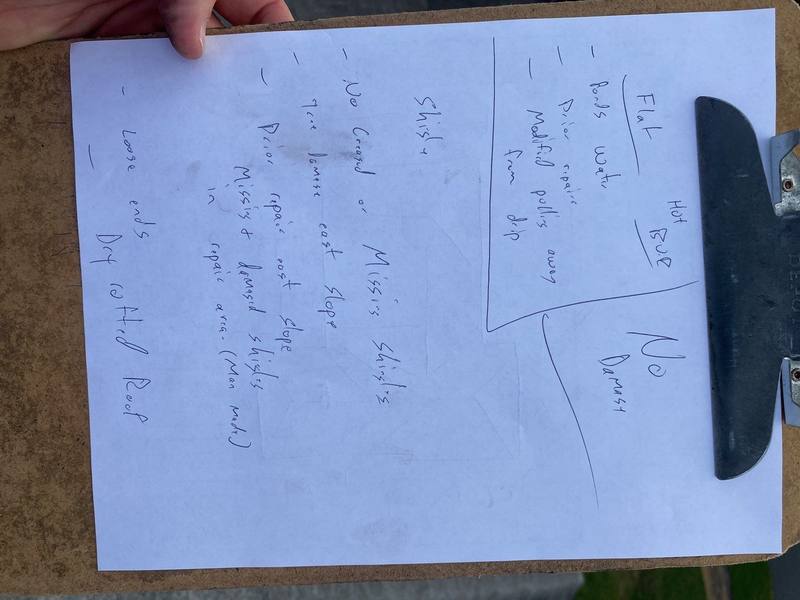 Flat
Hot
BUR
- Ponds water
- Prior repairs
- Modified pulling away
from drip
No
Damage
Shingle
- No Creased or Missing Shingles
- Tree damage east slope
- Prior repair east slope
Missing & damaged shingles
in repair area. (Man made)
- Loose ends
- Dry rotted Roof